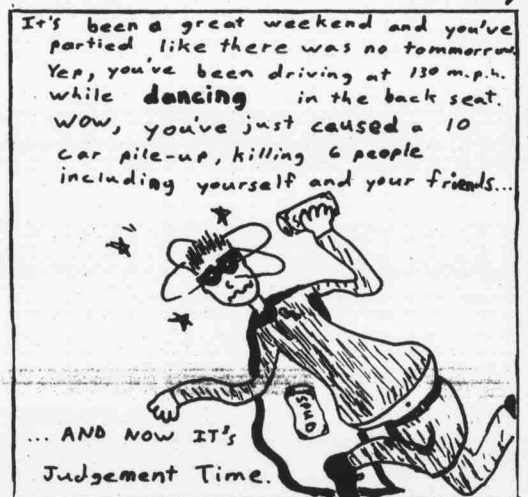 It's been a great weekend and you've
partied like there was no tommorrow.
Yep, you've been driving at 130 m.p.h.
while dancing in the back seat.
WOW, you've just caused a 10
car pile-up, killing 6 people
including yourself and your friends...
SPUD
... AND NOW IT's
Judgement Time.